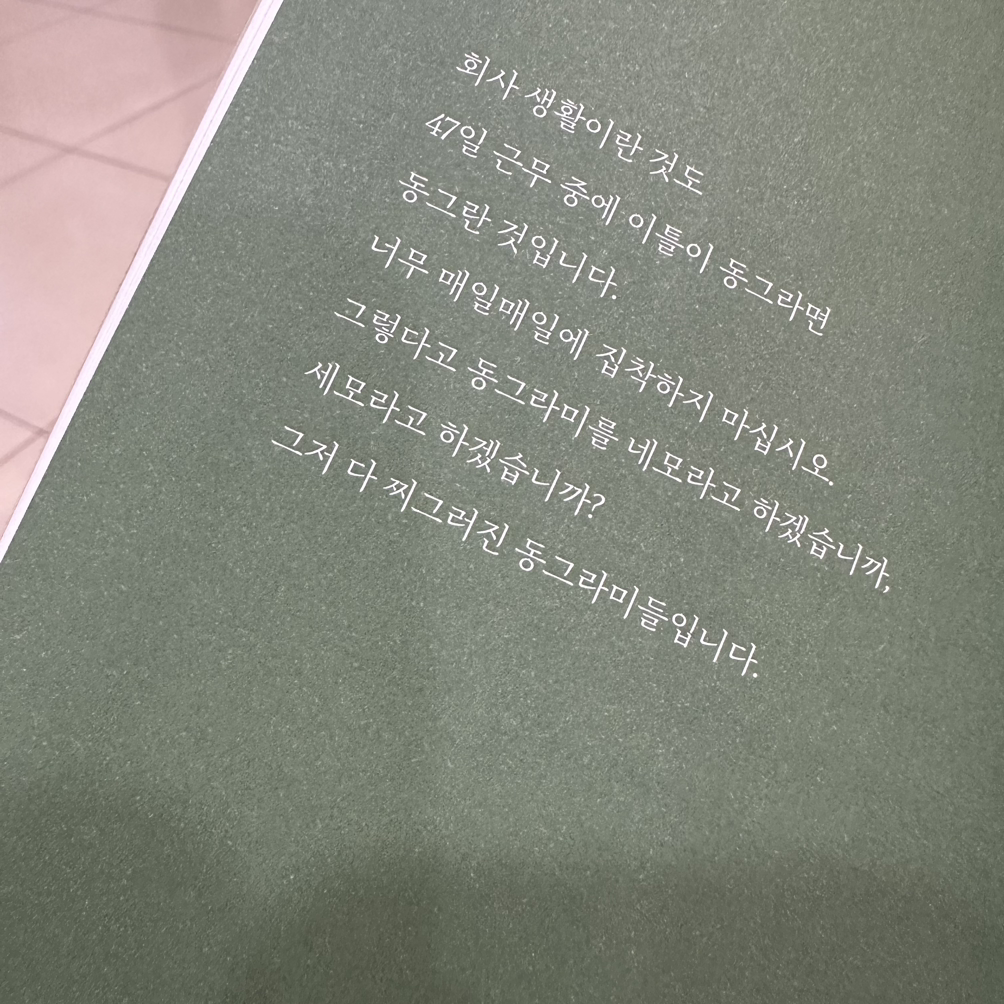 회사 생활이란 것도
47일 근무 중에 이틀이 동그라면
동그란 것입니다.
너무 매일매일에 집착하지 마십시오.
그렇다고 동그라미를 네모라고 하겠습니까,
세모라고 하겠습니까?
그저 다 찌그러진 동그라미들입니다.